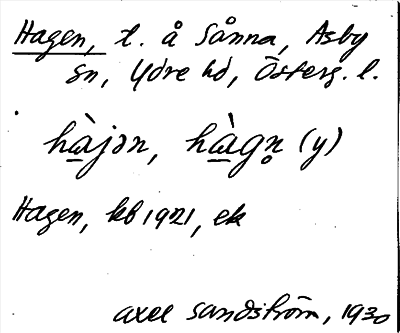 Hagen, t. å Sånna, Asby
sn, Ydre hd, Österg. l.
hàjən, hàgn̥ (y)
Hagen, kb 1921, ek
Axel Sandström, 1930